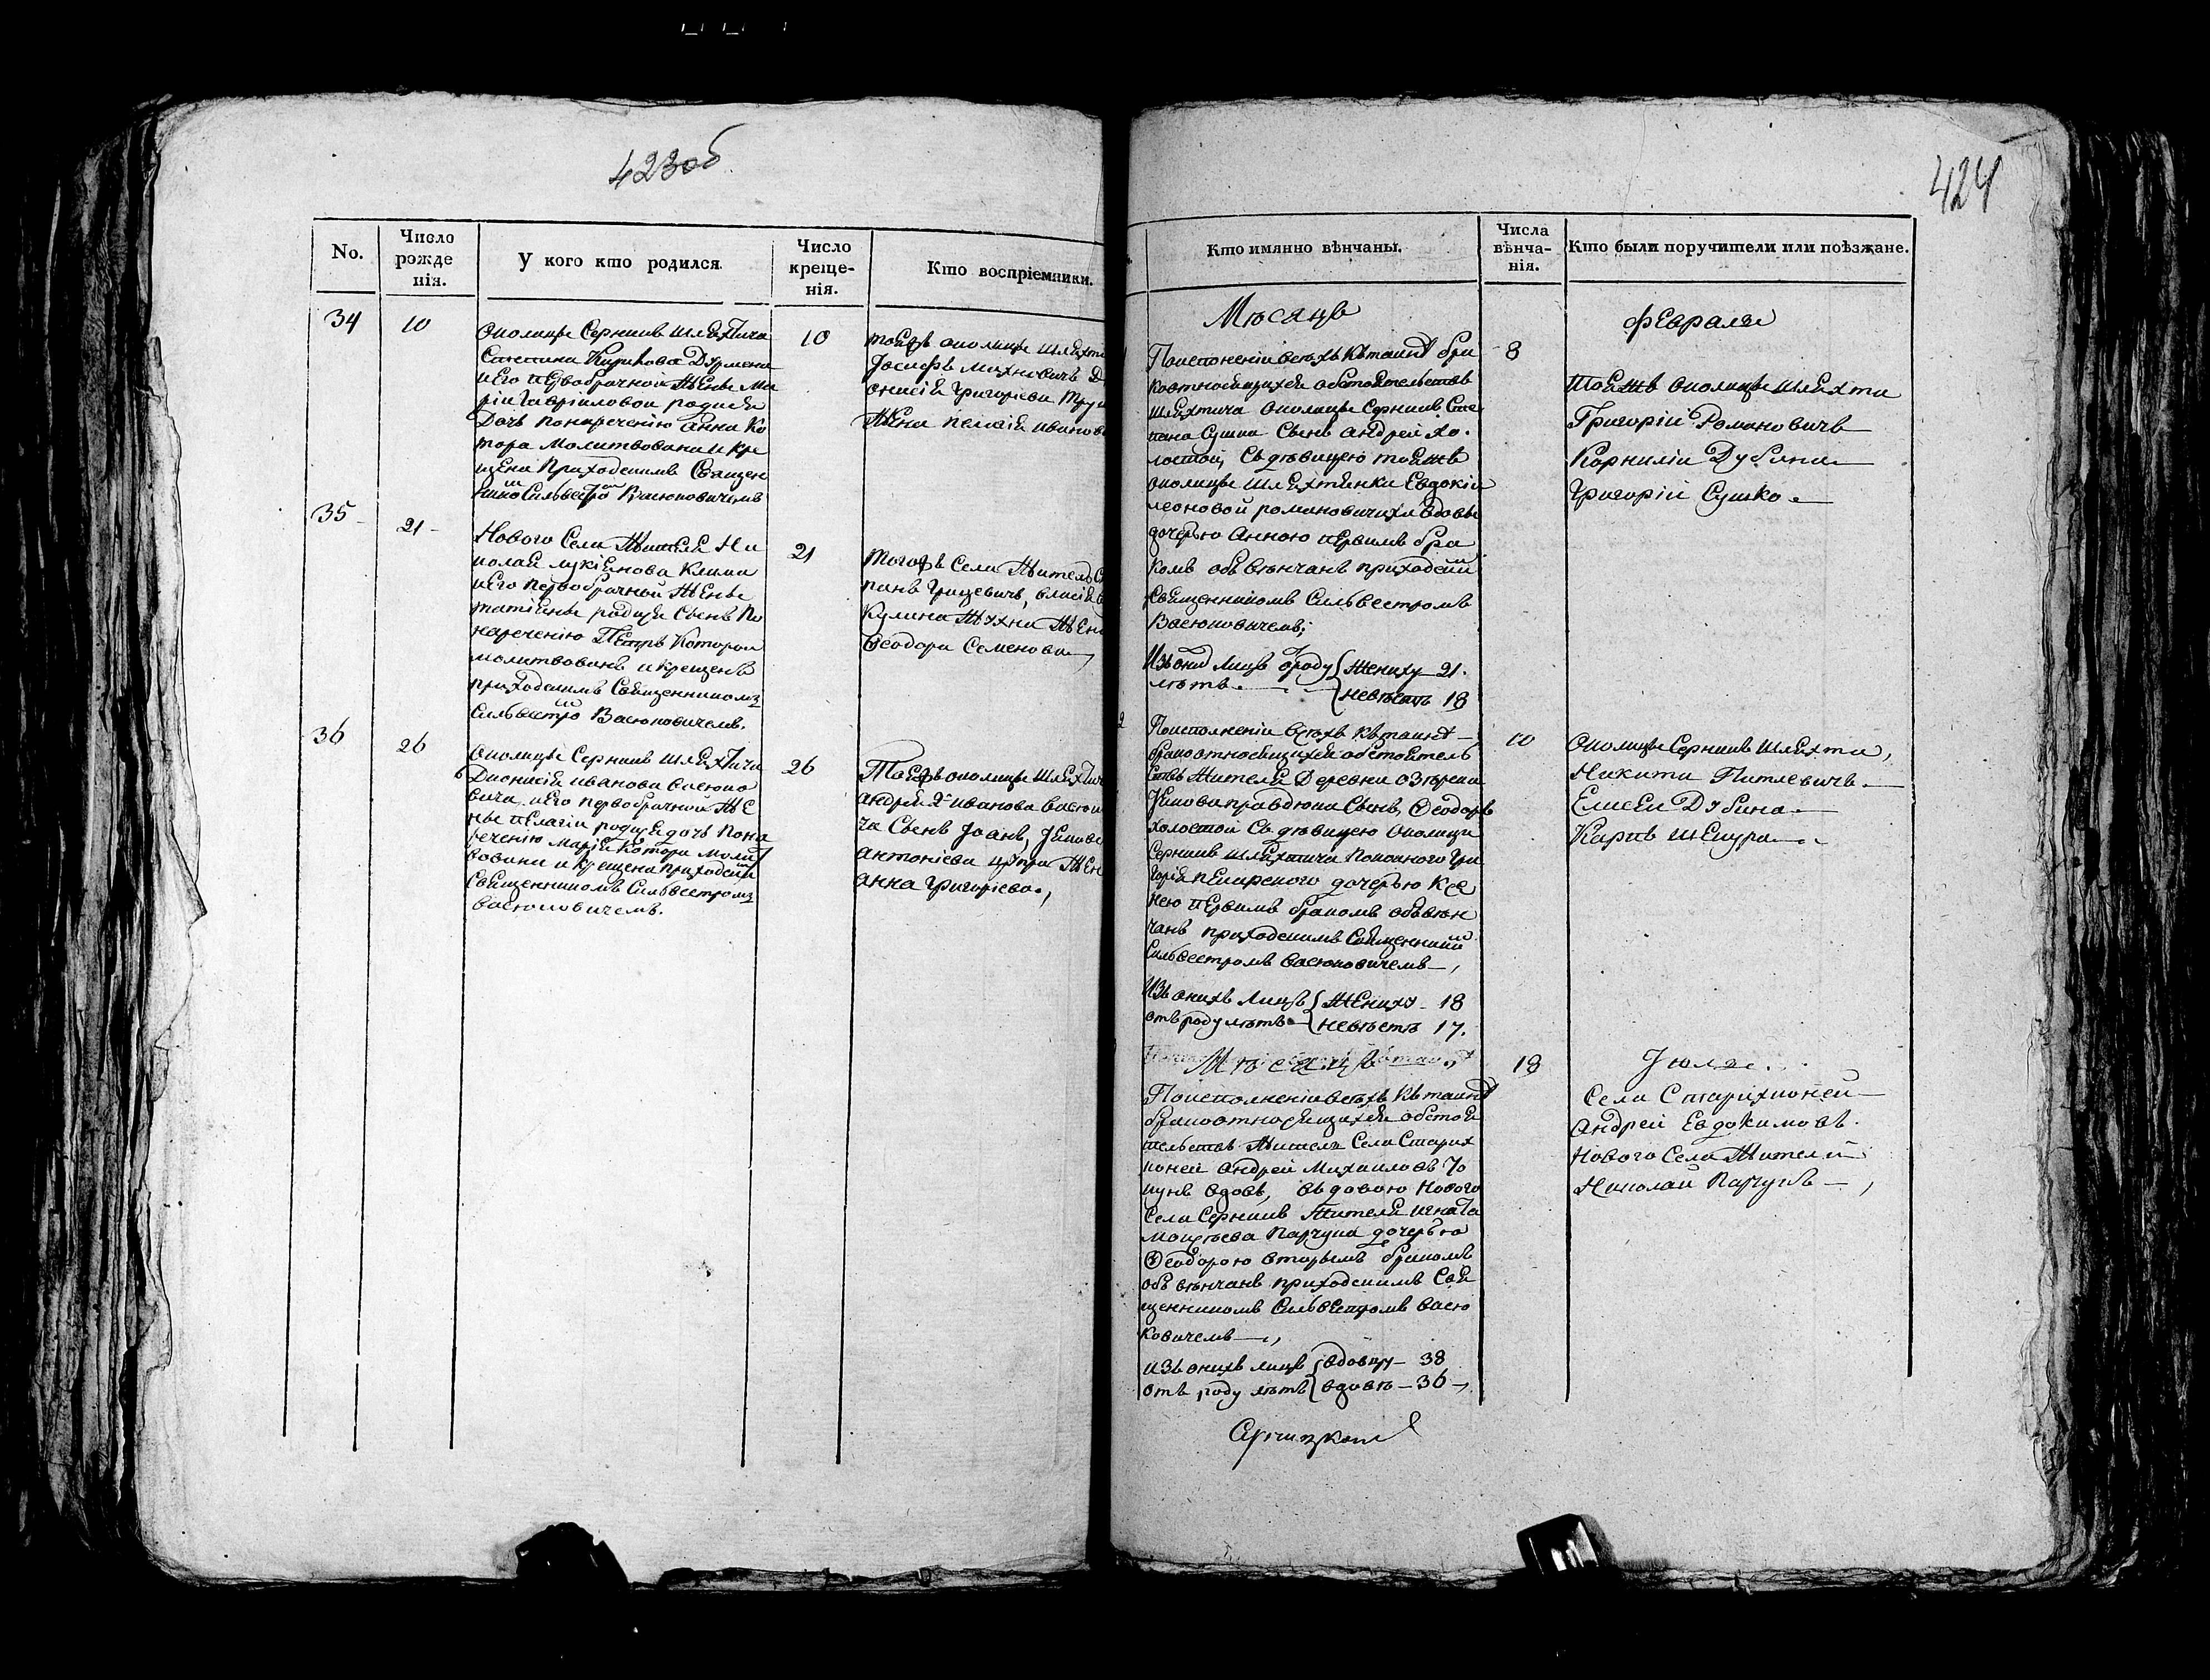 423об
No.
Число
рожде
нія.
У кого кто родился.
Число
креще-
нія.
Кто воспріемники.
34
10
Околицы Серникъ шляхтича
Степана Курилова Дурмана
и его первобрачной жены Ма
ріи Гавріиловой родися
Дочь понаречению Анна Ко
тора молитвована и кре
щена Приходскимъ Священ
Сильвестро Васюковичемъ
10
тоежъ околицы шляхти
Іосифъ Махновичъ
Григоріева
жена иванов
35
21
Нового Села жителя Ни
колая лукіянова Клима
и его первобрачной жены
татіяны родися Сынъ По
наречению Петръ Которои
молитвованъ и крещенъ
приходскимъ Священникомъ
Сильвестро Васюковичемъ.
21
Тогожъ Села житель
панъ Грицевичъ,
Кулина жена
Ѳеодора Семенова
36
26
Околицы Серникъ шляхтича
Дионисія иванова Васюко
вича и его первобрачной же
ны пелагіи родися дочь пона
речению Марія Котора молит
вована и крещена приходским
Священникомъ Сильвестромъ
Васюковичемъ.
26
Тоежъ околицы шляхтич
андрея иванова Васюк
ча Сынъ Іоанъ,
антоніева жен
анна Григоріева
424
Кто имянно вѣнчаны.
Числа
вѣнча-
нія.
Кто были поручители или поѣзжане.
Мѣсяцъ
Февраля
Поисполненіи всѣхъ къ таинст бра
ка относящихся обстоятельствъ
шляхтича Околицы Серникъ Сте
пана Сушка Сынъ андрей хо
лостой, Съ дѣвицею тоежъ
околицы шляхтянки Евдокіи
леоновой романовичихи вдовы
дочерью Анною первимъ бра
комъ обвѣнчанъ приходским
Священникомъ Сильвестромъ
Васюковичемъ;
Изъ оных лицъ отроду { Жениху 21.
лѣтъ. { невѣстѣ 18
8
Тоежъ околицы шляхти
Григорій Романовичъ
Корнилій Дубина
Григорій Сушко.
2
Поисполненіи всѣхъ къ таинст
брака относящихся обстоятель
ствъ жителя Деревни Озѣрска
Сынъ, Ѳеодоръ
холостой Съ дѣвицею Околици
Серникъ шляхтича Покойного Гри
горія дочерью Ксе
нею первимъ бракомъ обвѣн
чанъ приходскимъ Священник
Сильвестромъ Васюковичемъ,
Изъ онихъ лицъ { Жениху 18
отъ роду лѣтъ { невѣстѣ 17.
10
Околицы Серникъ шляхти,
Никита Питлевичъ
Елисей Дубина
Карпъ шекура
Мѣсяцъ
18
Іюля
Поисполненіи всѣхъ къ таинст
брака относящихся обстоя
тельствъ житель Села Старих
коней андрей Михаиловъ Чо
вдовъ, вдовою нового
Села Серникъ жителя игната
Моисѣева Парчука дочерью
Ѳеодорою вторымъ бракомъ
обвѣнчанъ приходскимъ Свя
щенникомъ Сильвестромъ Васю
ковичемъ,
изъ онихъ лицъ { вдовцу 38
отъ роду лѣтъ { вдовѣ 36
Села Старихконей
андрей Евдокимовъ.
Нового Села жители
Николай Парчукъ